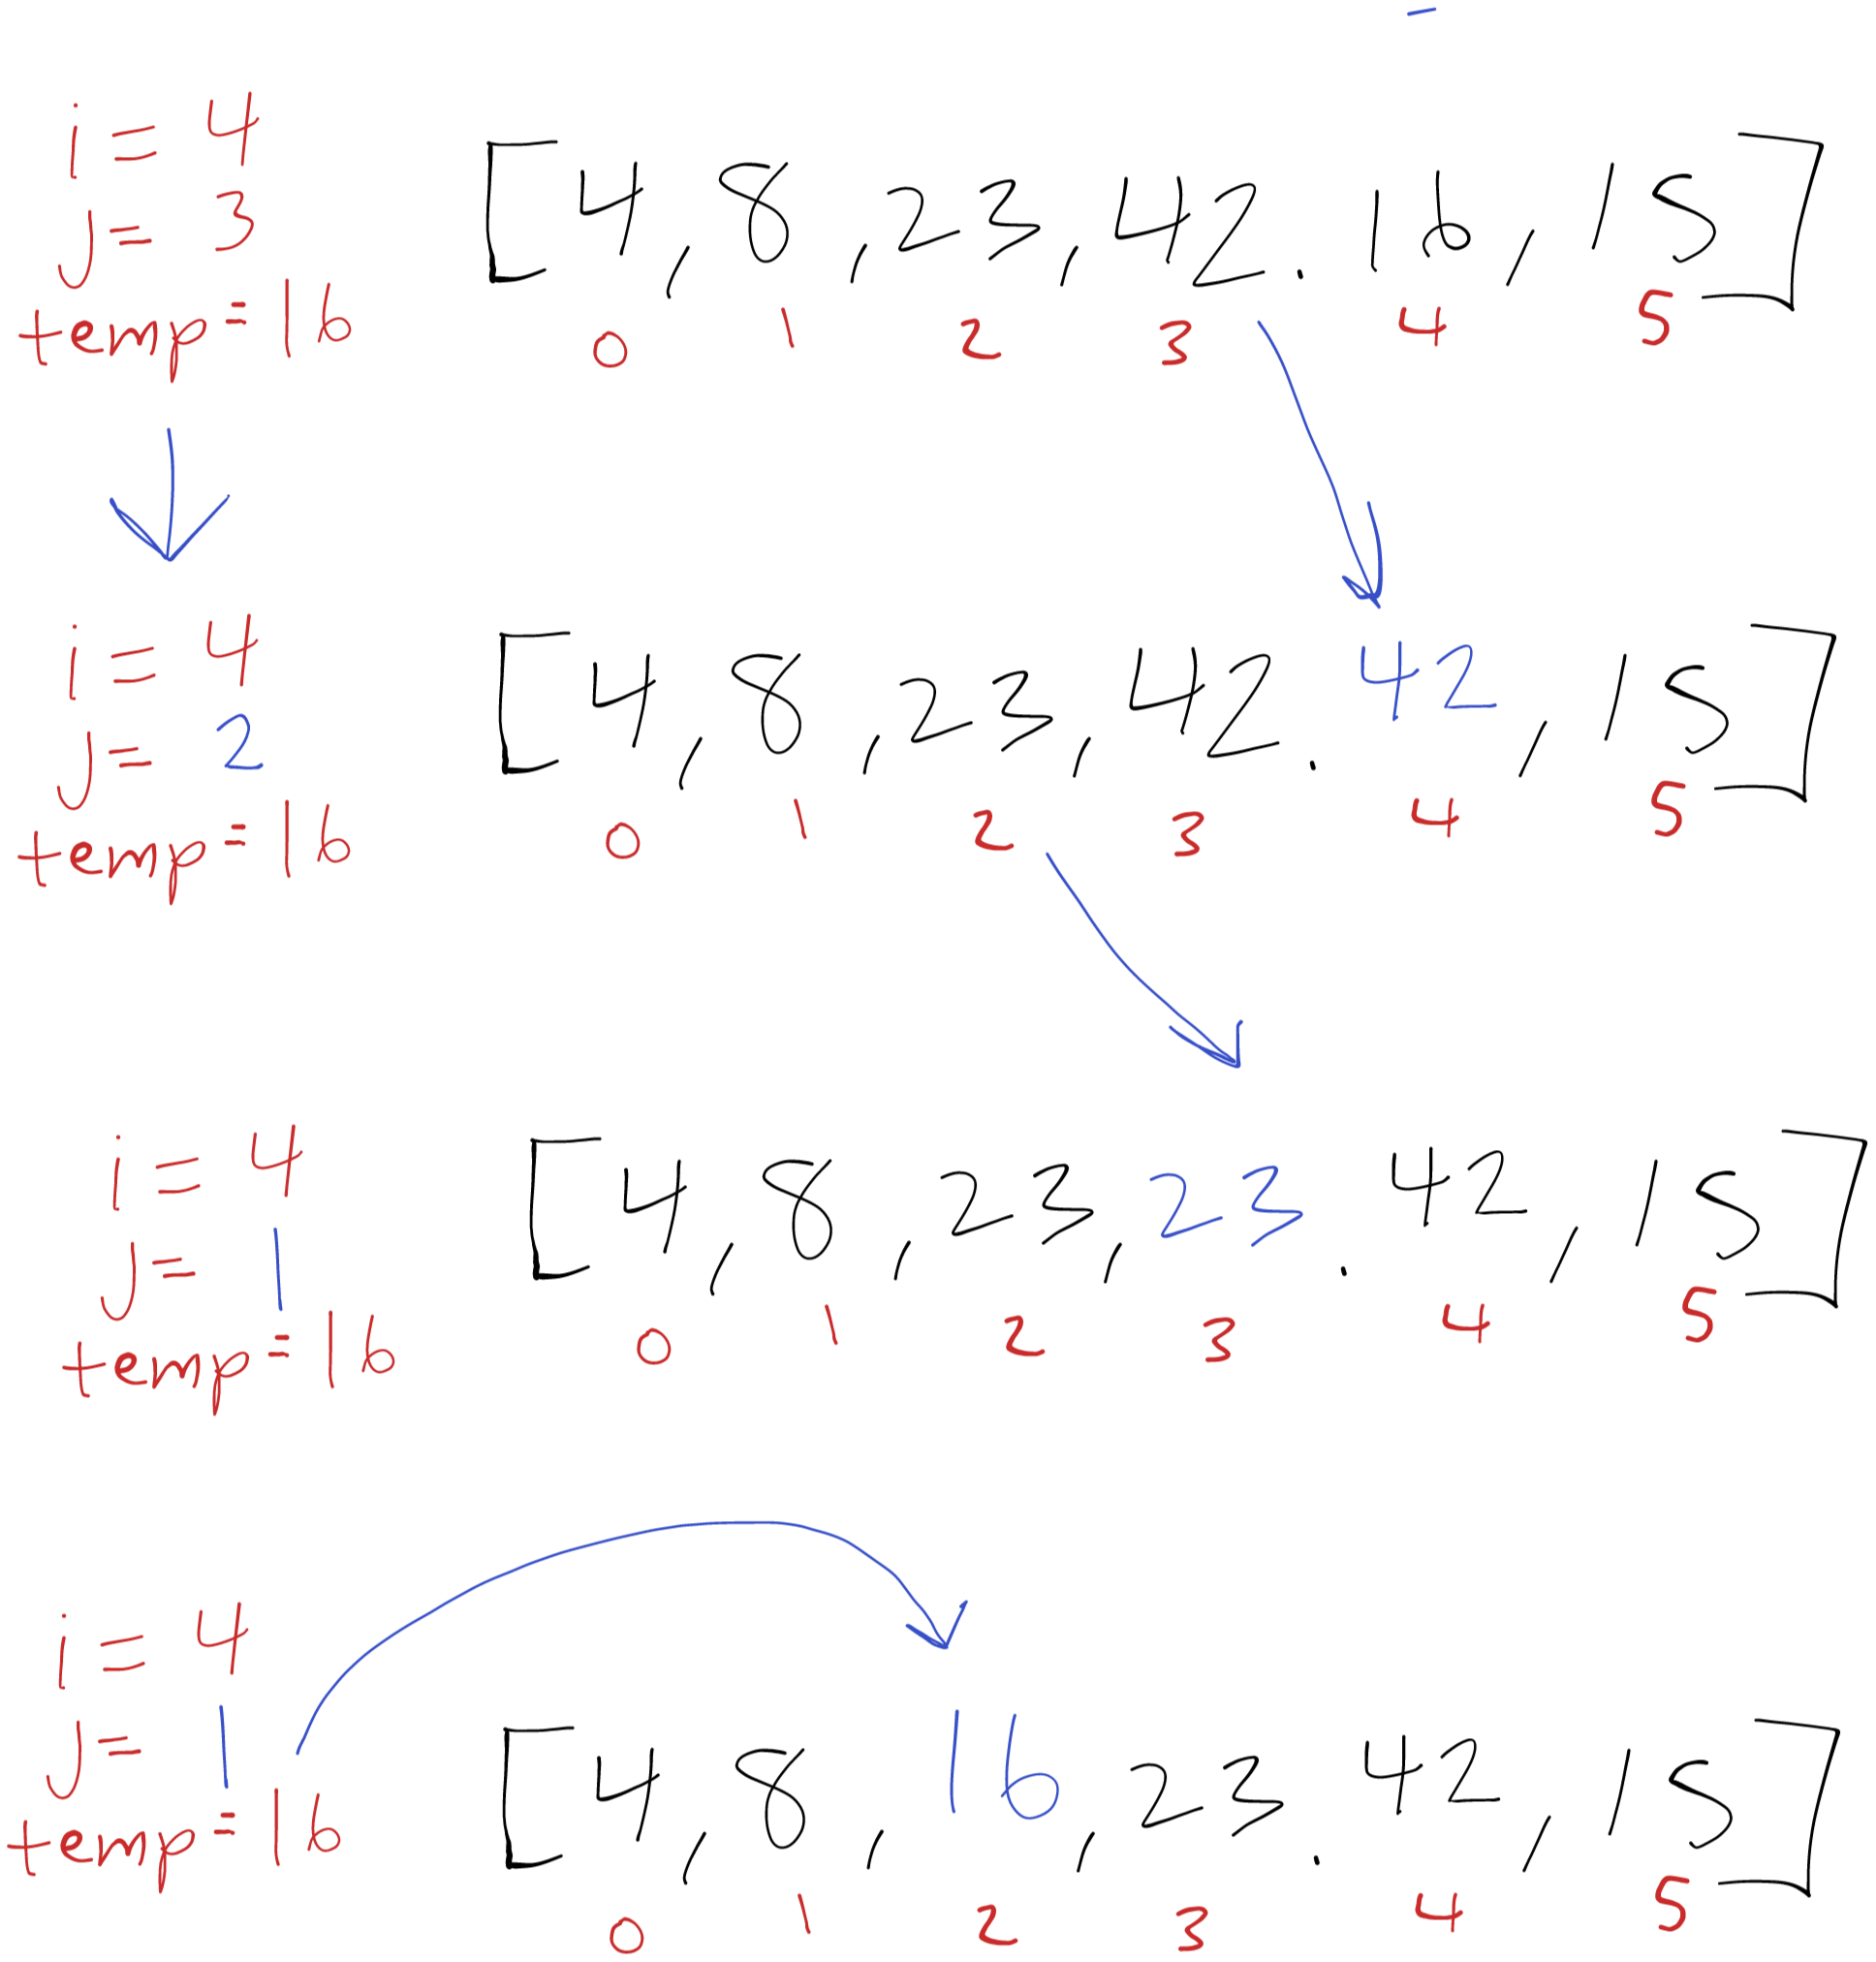 i = 4
j = 3
temp = 16
[4, 8, 23, 42. 16, 15]
0 1 2 3 4 5
i = 4
j = 2
temp = 16
[4, 8, 23, 42. 42, 15]
0 1 2 3 4 5
i = 4
j = 1
temp = 16
[4, 8, 23, 23. 42, 15]
0 1 2 3 4 5
i = 4
j = 1
temp = 16
[4, 8, 16, 23. 42, 15]
0 1 2 3 4 5